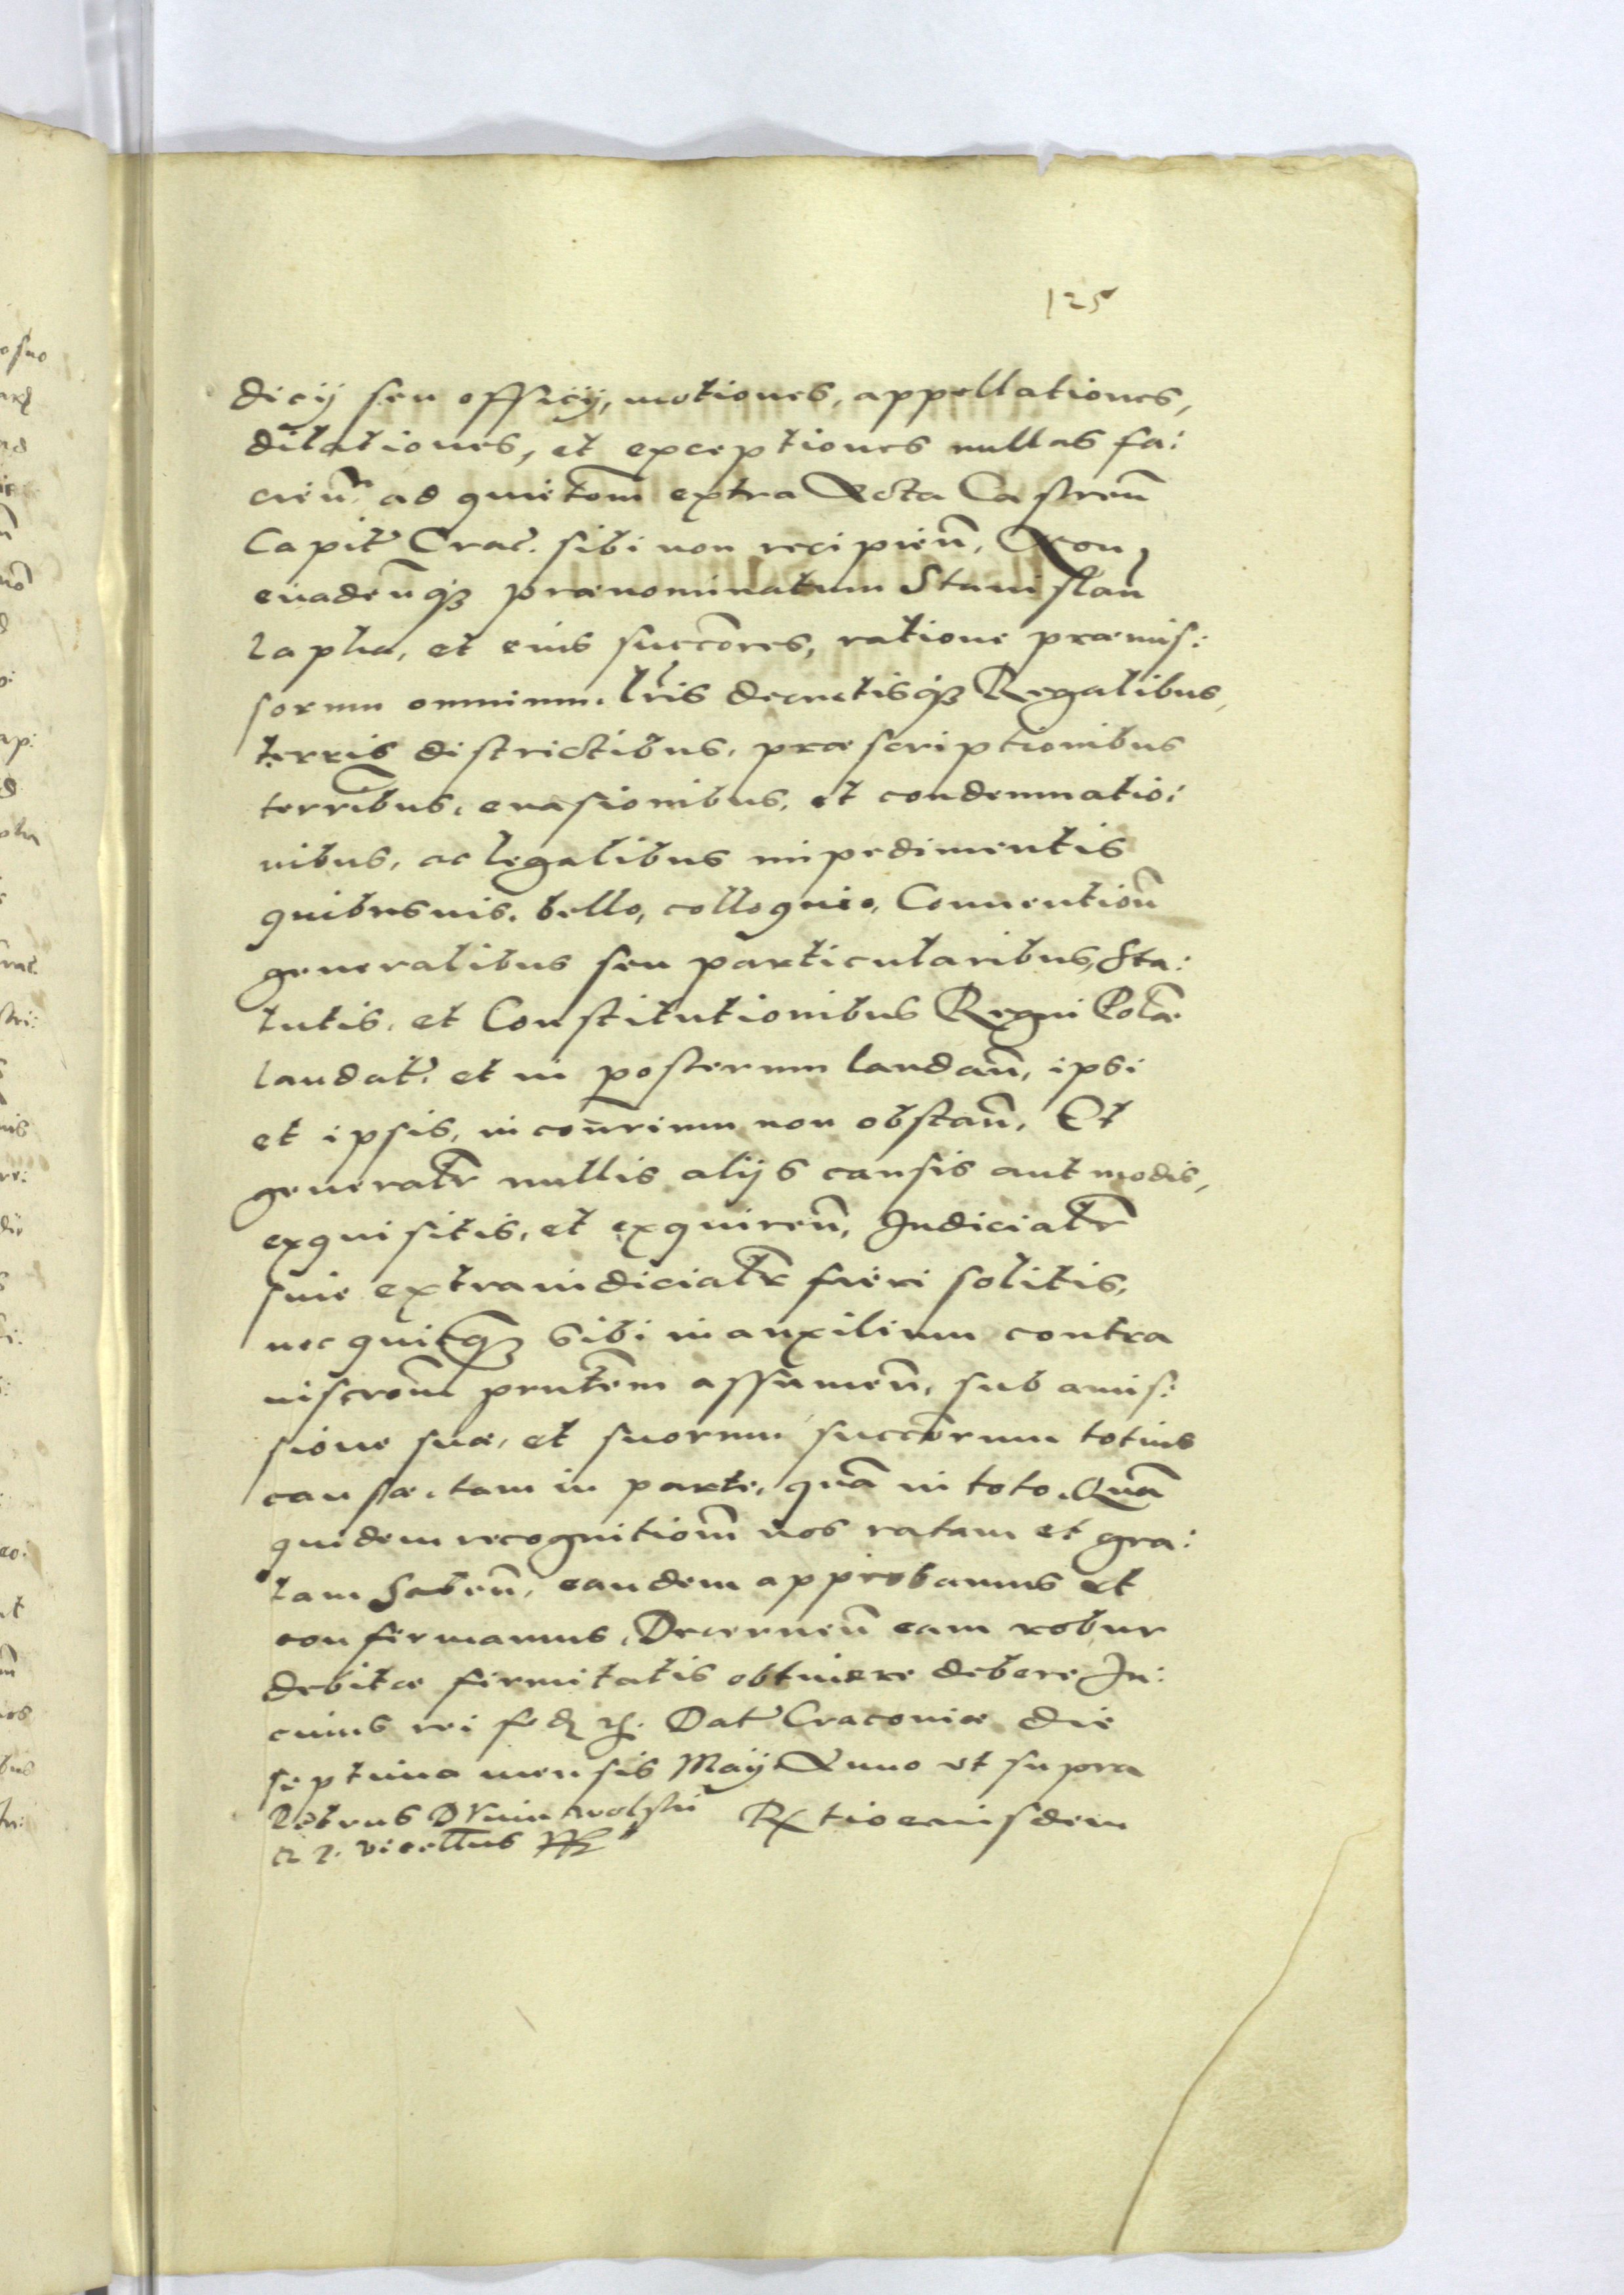 125
dicij seu officij, motiones, appellationes,
dilationes, et exceptiones nullas fa:
cieñ. ad quietem extra Acta Castreñ
Capit Crac. sibi non recipieñ, Exon,
euadeñq3 prænominatum Stanislaũ
Lapka, et eius succores, ratione præmis:
sorum omnium. lris decretisq3 Regalibus,
terris districtibus, præscriptionibus
terribus, euasionibus, et condemnatio:
nibus, ac legalibus impedimentis
quibusuis. bello, colloquio, Conuentioñ
generalibus seu particularibus, Sta:
tutis, et Constitutionibus Regni Polæ
laudat. et in posterum laudañ, ipsi
et ipsis, in conrium non obstañ, Et
generalr nullis alijs causis aut modis,
exquisitis, et exquireñ, Iudicialr
siue extraiudicialr fieri solitis,
nec quicq3 sibi in auxilium contra
inscrõm prntem assumeñ, sub amis:
sione suæ, et suorum succorum totius
causæ. tam in parte, quã in toto. Quã
quidem recognitiõm nos ratam et gra:
tam habeñ, eandem approbamus et
confirmamus, Decerneñ eam robur
debitæ firmitatis obtinere debere In:
cuius rei fid. Dat Cracoviæ die
septima mensis Maij Anno vt supra
Petrus Dunin Wolski Rtio eiusdem
R P. vicecellrius